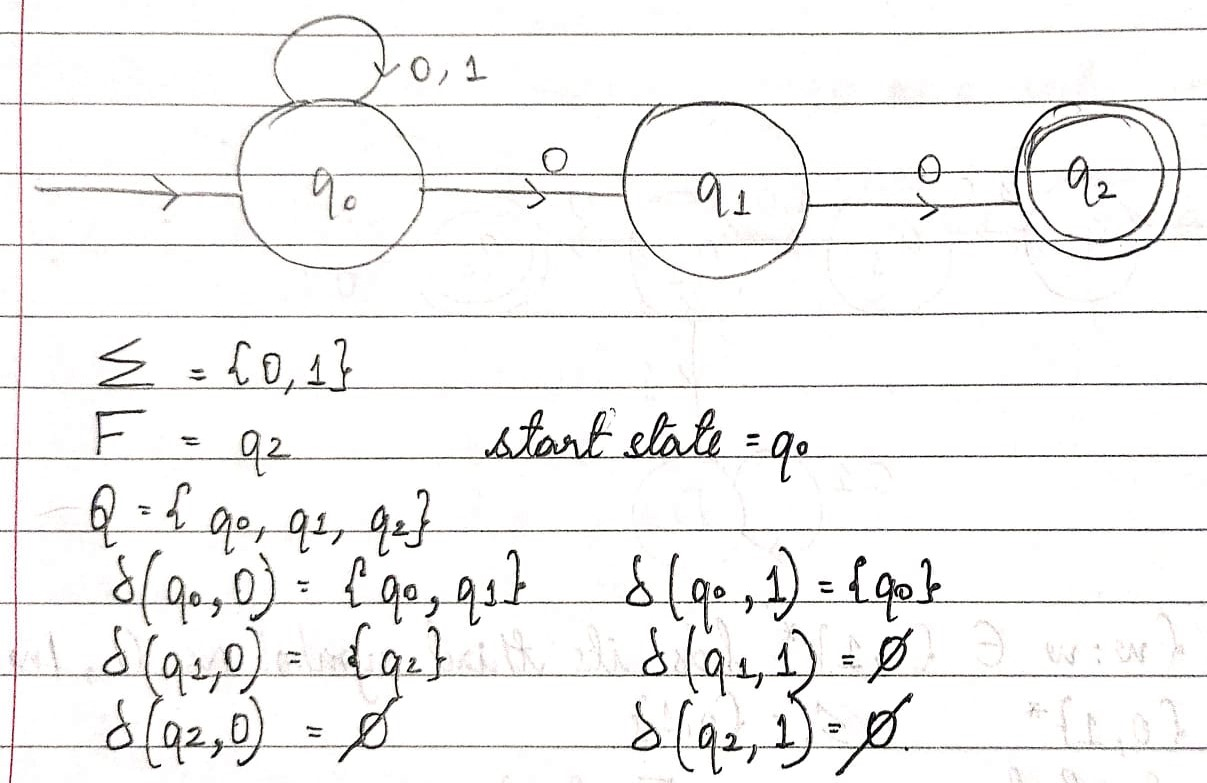 0, 1
q0 0 q1 0 q2
Σ = {0,1}
F = q2 start state = q0
Q = { q0, q1, q2}
δ(q0,0) = { q0, q1} δ(q0,1) = {q0}
δ(q1,0) = {q2} δ(q1,1) = ∅
δ(q2,0) = ∅ δ(q2,1) = ∅.